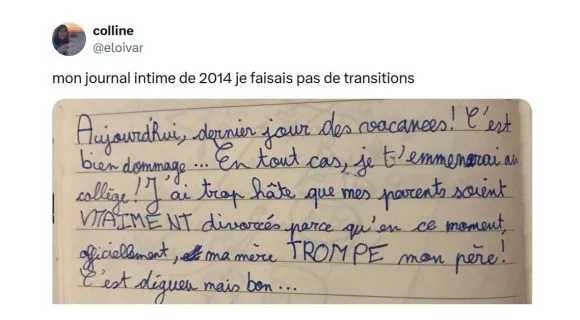 colline
@eloivar
mon journal intime de 2014 je faisais pas de transitions
Aujourd'hui, dernier jour des vacances! C'est
bien dommage... En tout cas, je t'emmenerai au
collège! J'ai trop hâte que mes parents soient
VRAIMENT divorcés parce qu'en ce moment,
officiellement, ma mère TROMPE mon père!
C'est dégueu mais bon...